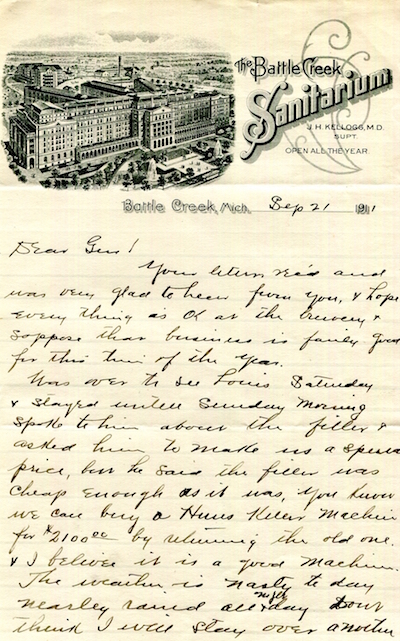 The Battle Creek
Sanitarium
J. H. KELLOGG, M.D.
SUPT.
OPEN ALL THE YEAR
Battle Creek, Mich. Sep 21 1911
Dear Gus!
Your letter rec'd and
was very glad to hear from you, & hope
every thing is OK at the brewery &
suppose that business is fairly good
for this time of the year.
Was over to see Louis Saturday
& stayed untell Sunday Morning
spoke to him about the filler &
asked him to make us a special
price, but he said the filler was
cheap enough as it was, you know
we can buy a Keller Machine
for $2100.00 by returning the old one.
& I believe it is a good Machine.
The weather is nasty to day
nearley rained all night & day dont
think I will stay over another